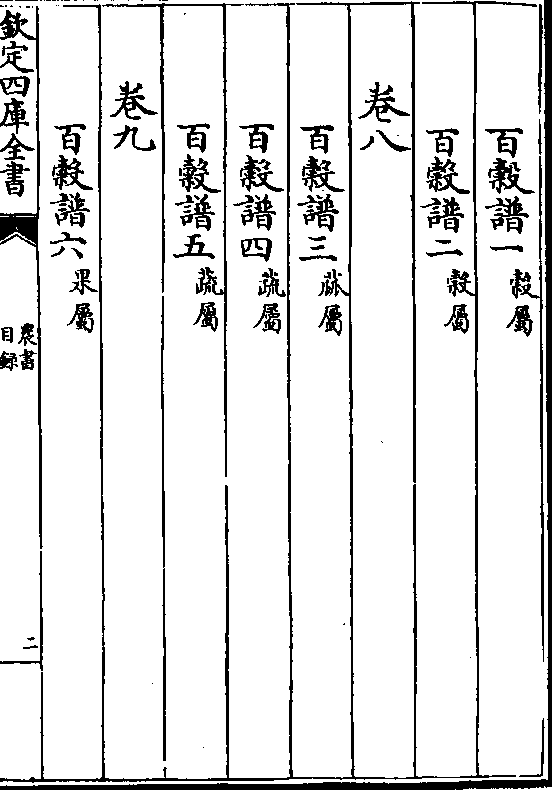 百穀譜一 穀屬
百穀譜二 穀屬
卷八
百穀譜三 蓏屬
百穀譜四 蔬屬
百穀譜五 蔬屬
卷九
百穀譜六 果屬
欽定四庫全書
農書
目録
二